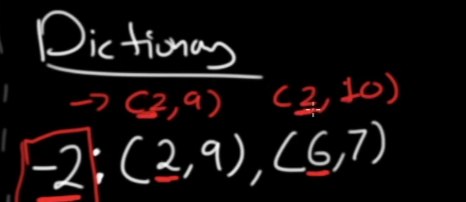 Dictionary
→ (2,9) (2,10)
-2: (2,9), (6,7)